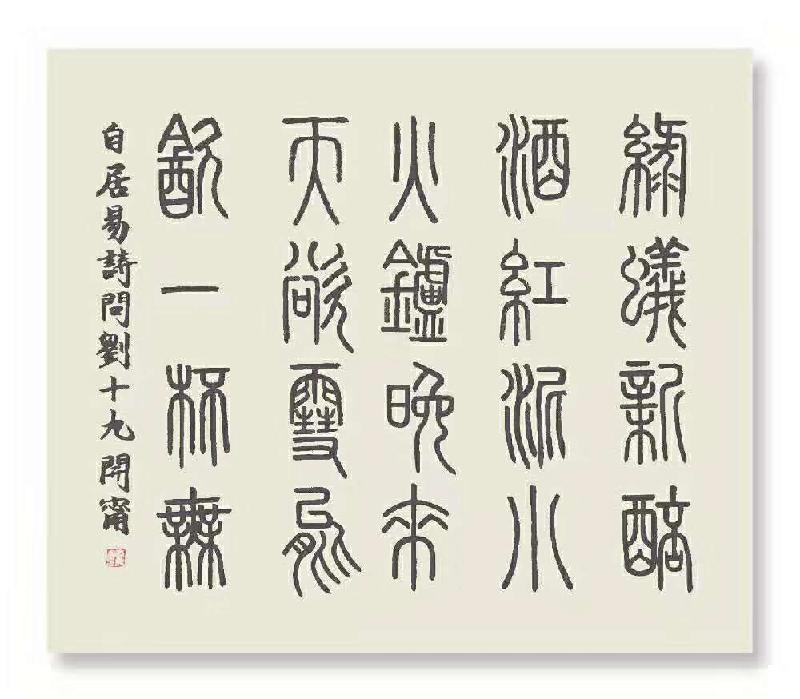 綠蟻新醅
酒紅泥小
火鑪晚來
天欲雪能
㱃一杯無
自居易詩問劉十九開甯